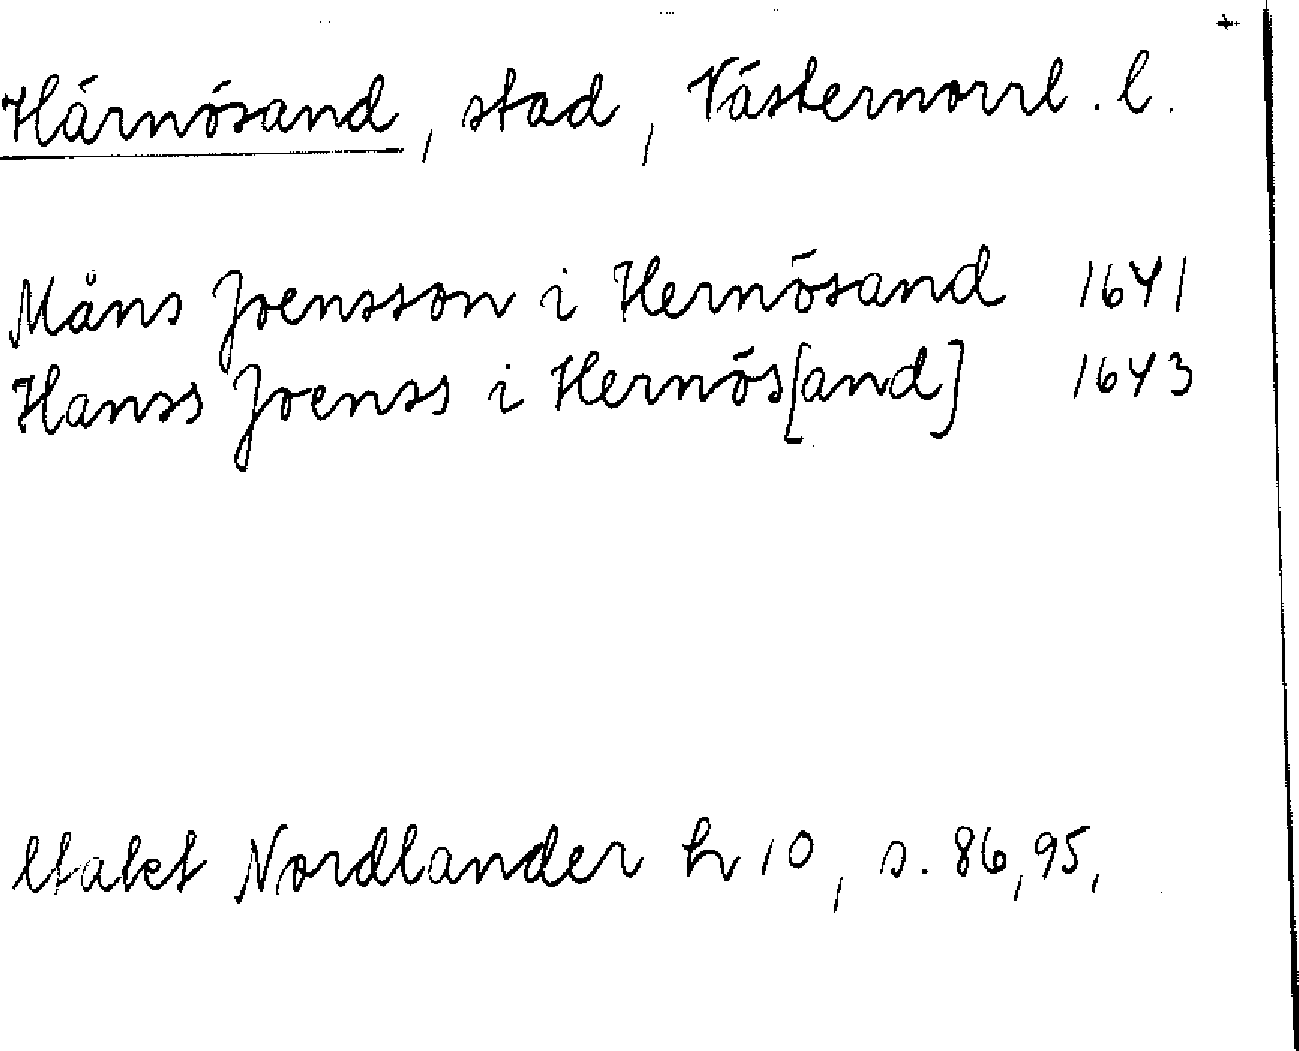 Härnösand, stad, Västernorrl. l.
Måns Joensson i Hernösand 1641
Hanss Joenss i Hernös[and] 1643
Nordlander h 10, s. 86, 95,